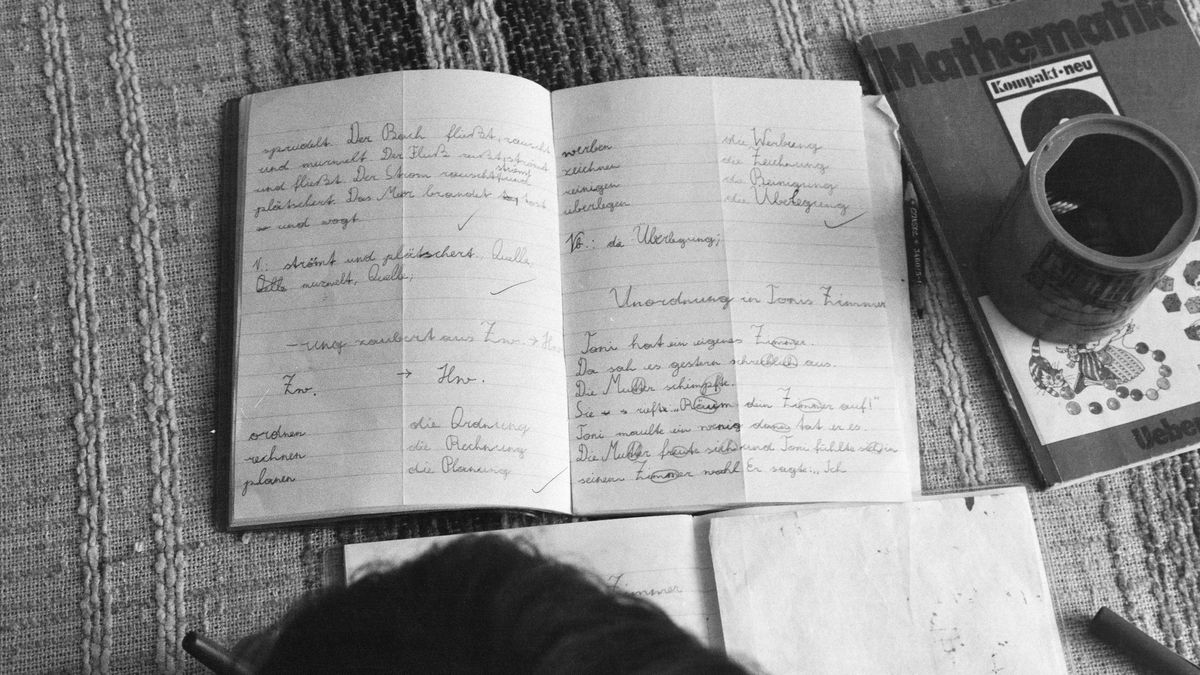 sprudelt. Der Bach fließt, rauscht
und murmelt. Der Fluß rauscht, strömt
strömt
und fließt. Der Strom rauscht und
plätschert. Das Meer brandet, tost
und wogt
V.: strömt und plätschert, Quelle,
murmelt, Quelle;
-ung zaubert aus Zw. → Hw
Zw. → Hw.
ordnen die Ordnung
rechnen die Rechnung
planen die Planung
werben die Werbung
zeichnen die Zeichnung
reinigen die Reinigung
überlegen die Überlegung
Vb.: die Überlegung;
Unordnung in Tonis Zimmer
Toni hat ein eigenes Zimmer.
Da sah es gestern schrecklich aus.
Die Mutter schimpfte.
Sie rufte: „Räum dein Zimmer auf!"
Toni maulte ein wenig dann tat er es.
Die Mutter freute sich und Toni fühlte sich in
seinem Zimmer wohl. Er sagte: „Ich
Zimmer
Mathematik
Kompakt-neu
Ueber